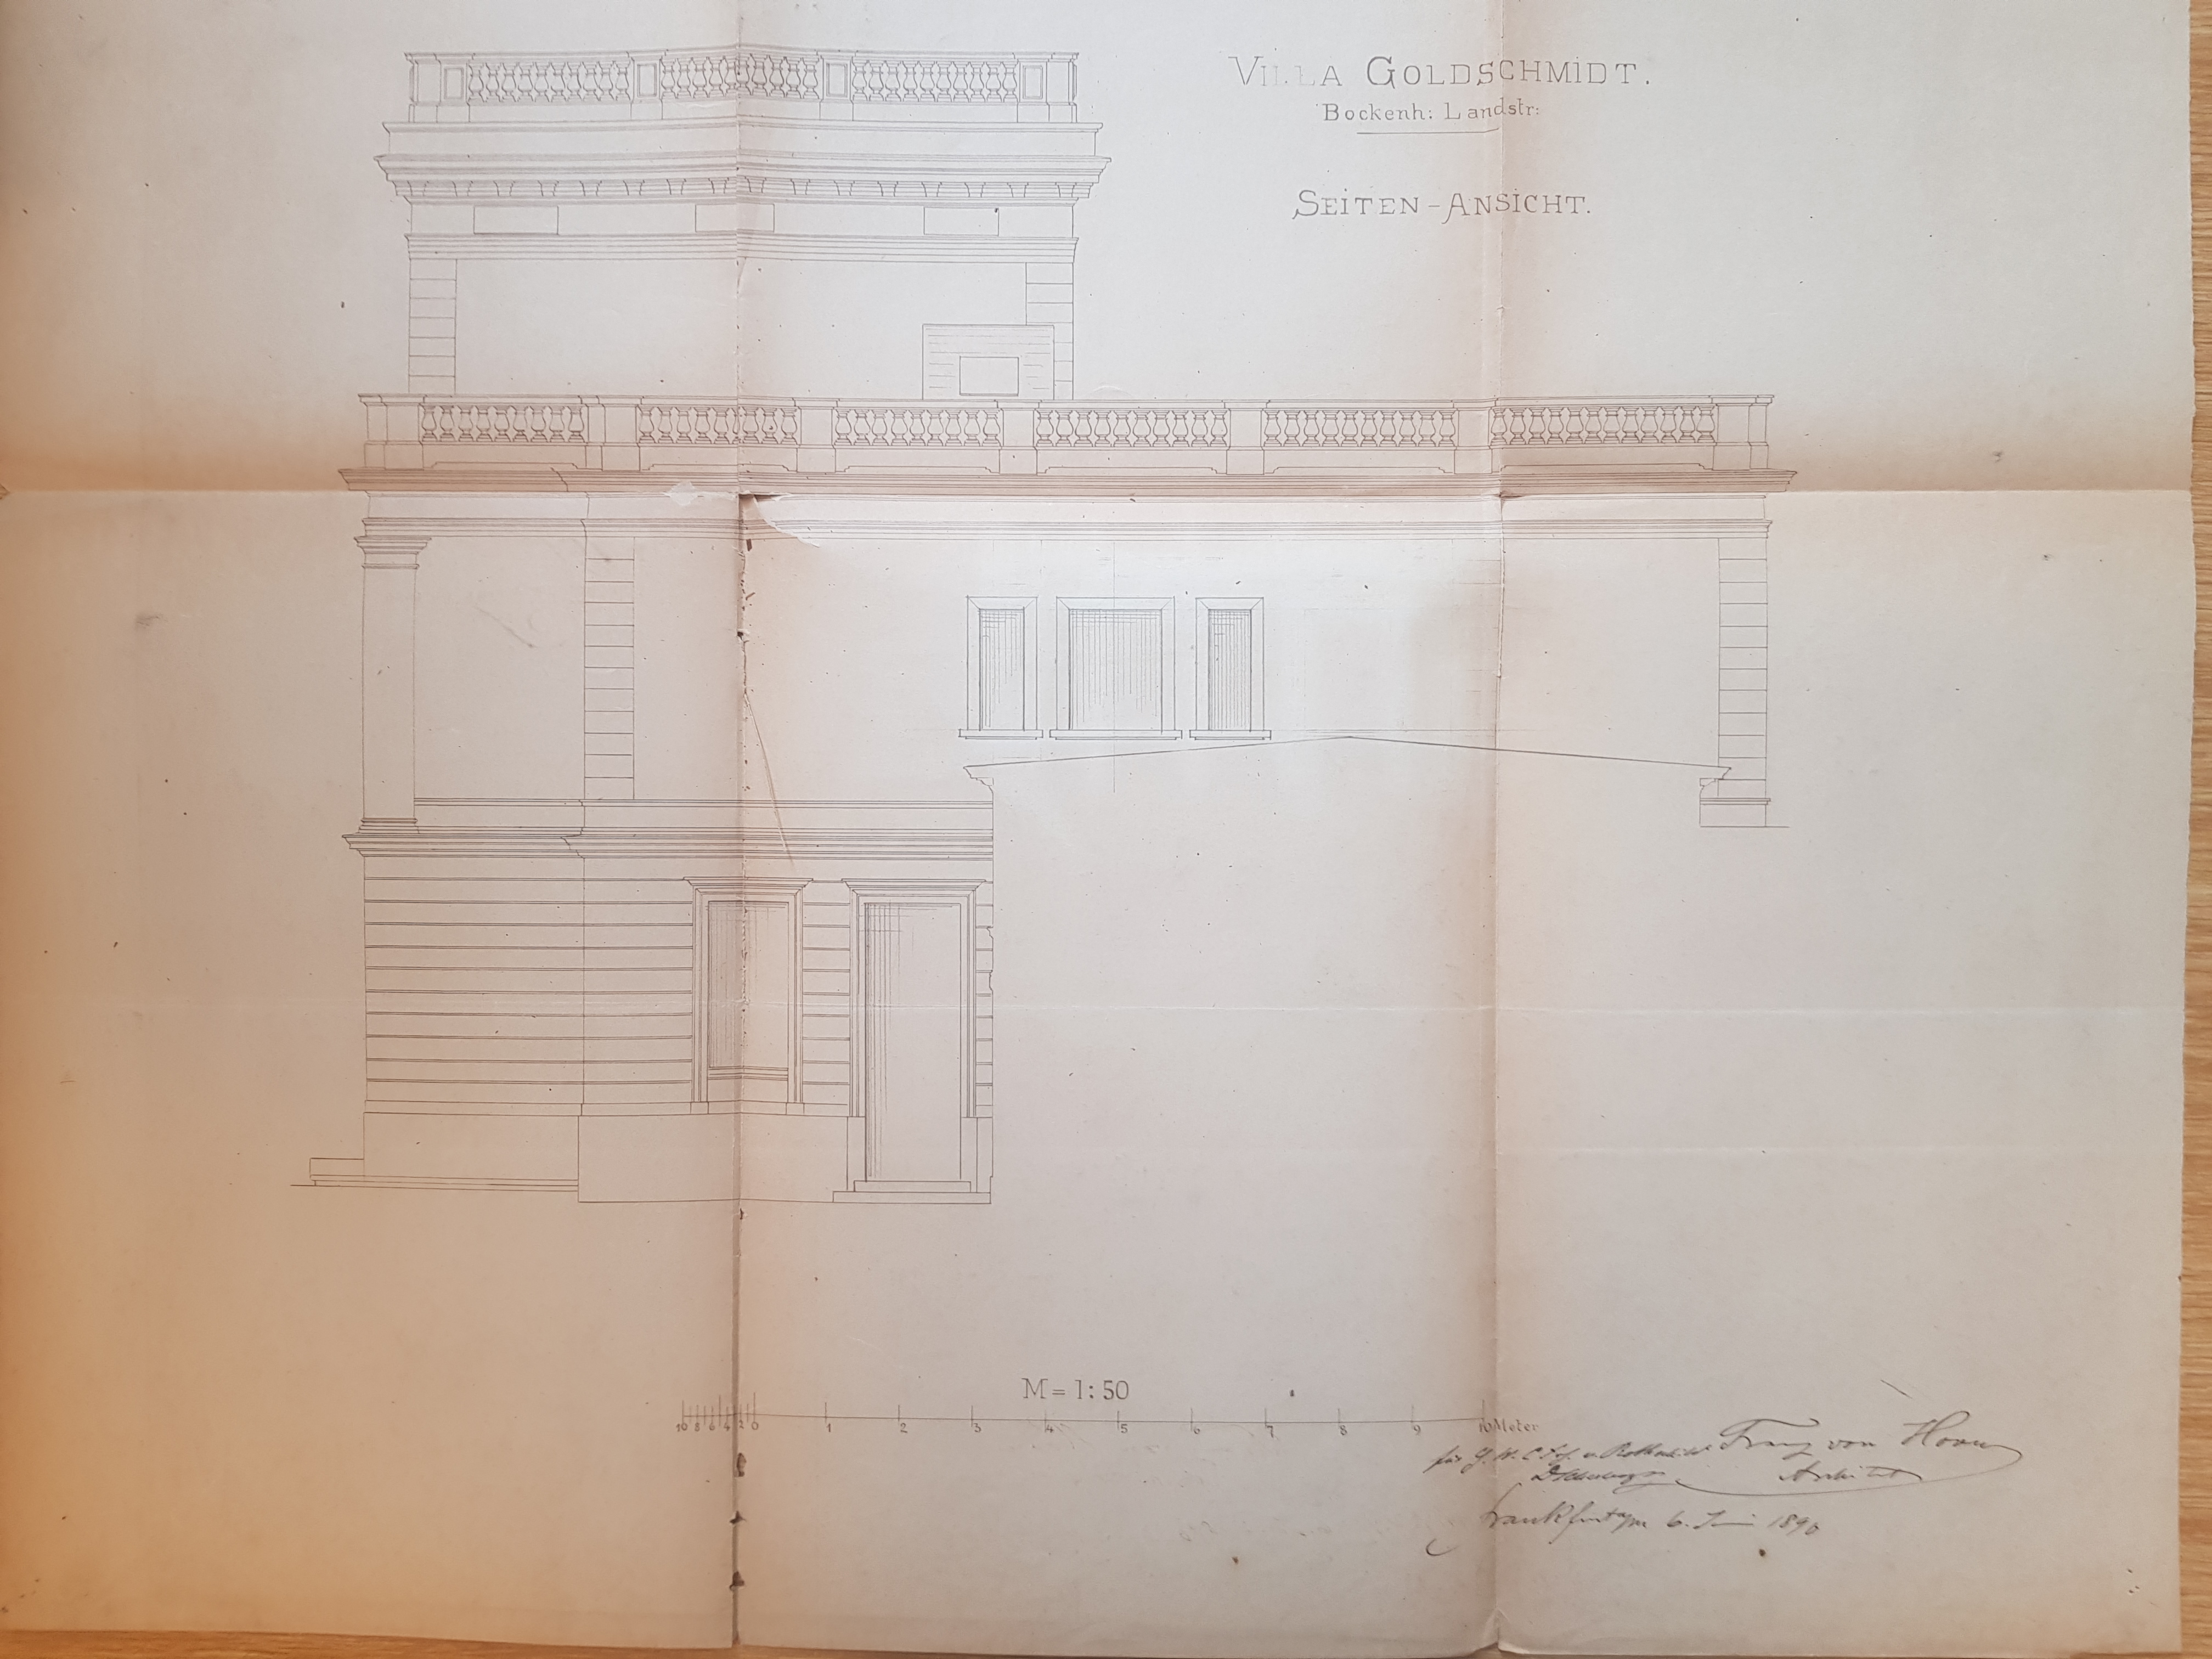 VILLA GOLDSCHMIDT.
Bockenh: Landstr:
SEITEN-ANSICHT.
M = 1:50
10 8 6 4 2 0 1 2 3 4 5 6 7 8 9 10 Meter
für Franz von Hoven
Architect
Frankfurt a/m 6. Juni 1890